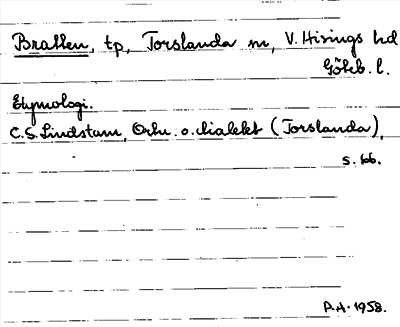 Bratten, tp, Torslanda sn, V. Hisings hd
Göteb. l.
Etymologi.
C. S. Lindstam, Ortn. o. dialekt (Torslanda),
s. 66.
P.H. 1958.